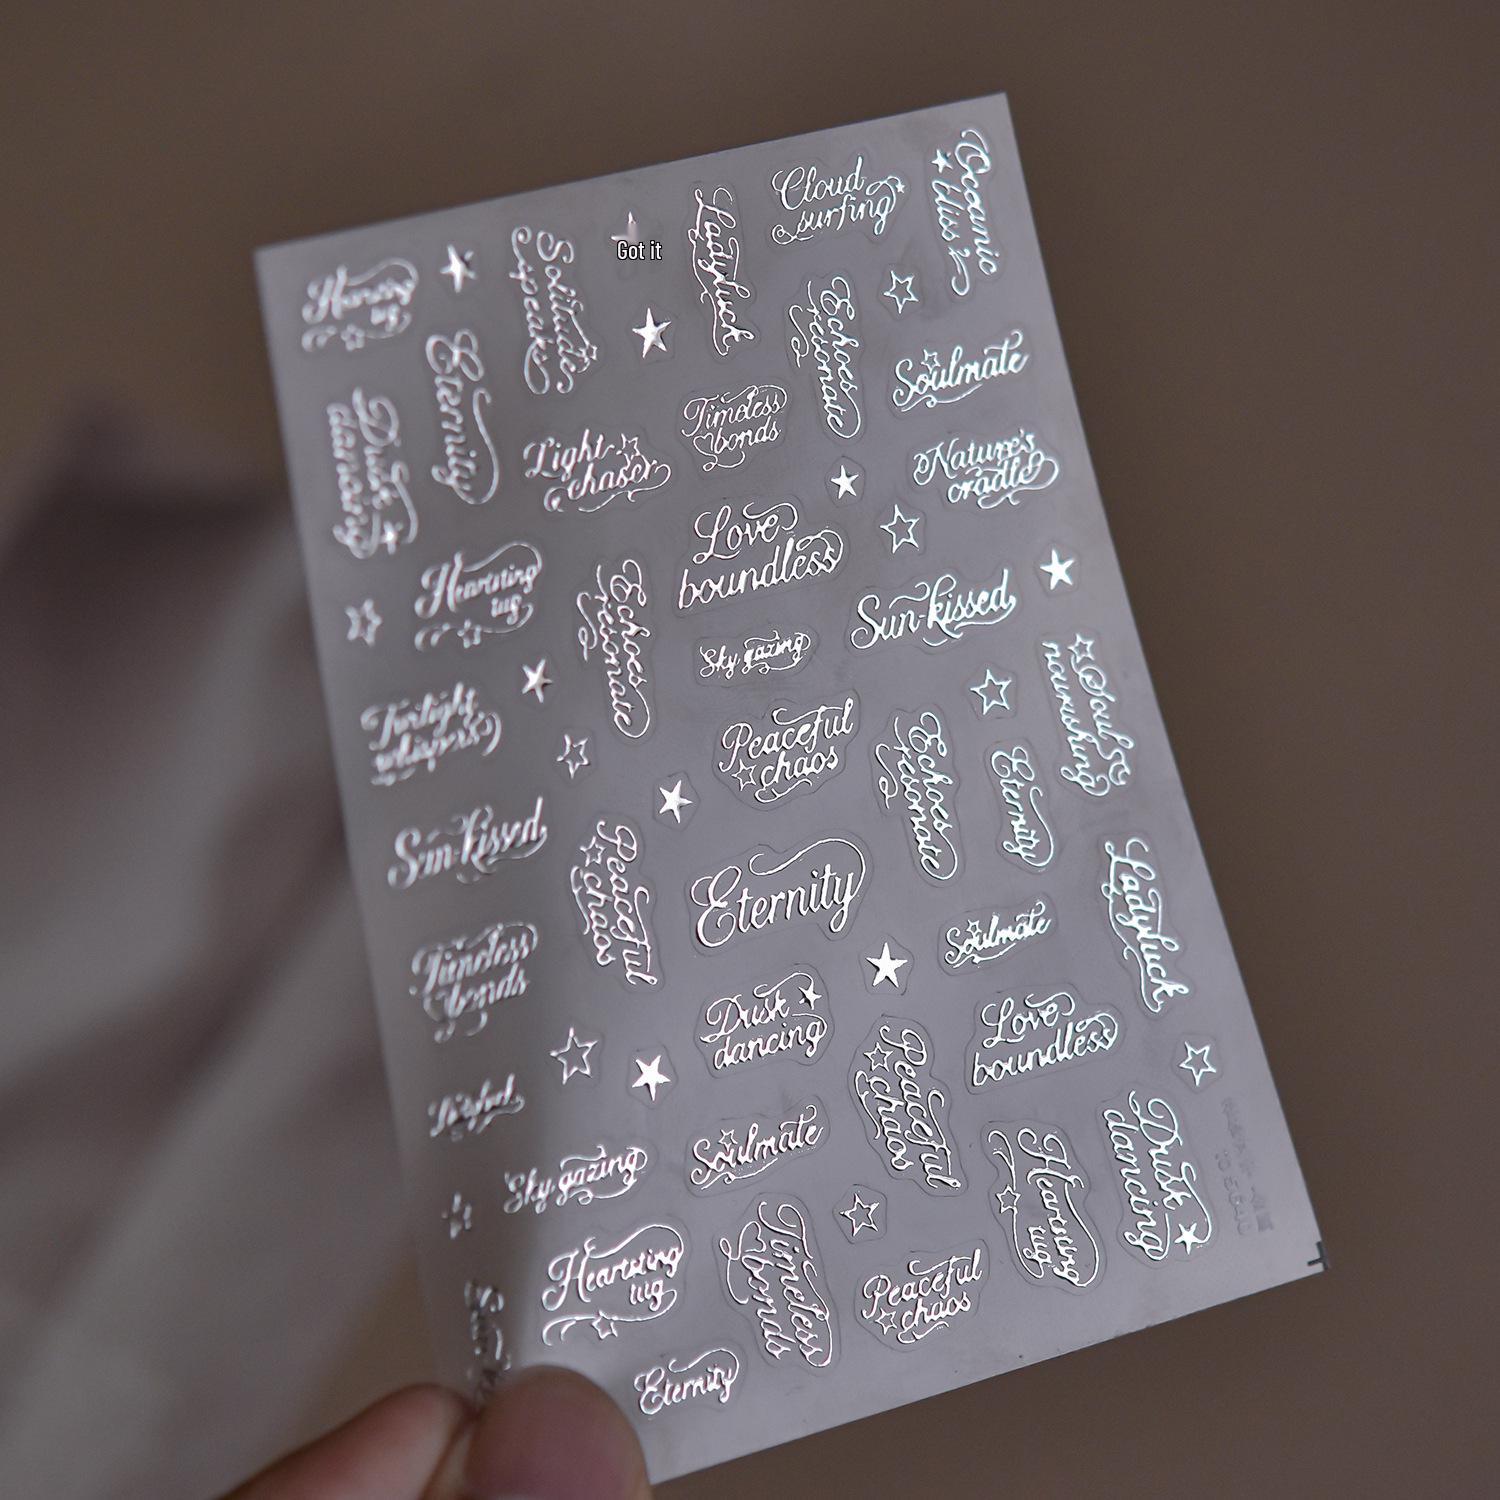 Oceanic
bliss
Cloud
surfing
Ladyluck
Got it
Solitude
speaks
Echoes
resonate
Soulmate
Eternity
Timeless
bonds
Light
chaser
Nature's
cradle
Dusk
dancing
Love
boundless
Heartstring
tug
Echoes
resonate
Sun-kissed
Sky gazing
Soul
nourishing
Twilight
whispers
Peaceful
chaos
Echoes
resonate
Eternity
Sun-kissed
Peaceful
chaos
Eternity
Ladyluck
Soulmate
Timeless
bonds
Dusk
dancing
Love
boundless
Peaceful
chaos
Soulmate
Dusk
dancing
Sky gazing
Heartstring
tug
Heartstring
tug
Timeless
bonds
Peaceful
chaos
Eternity